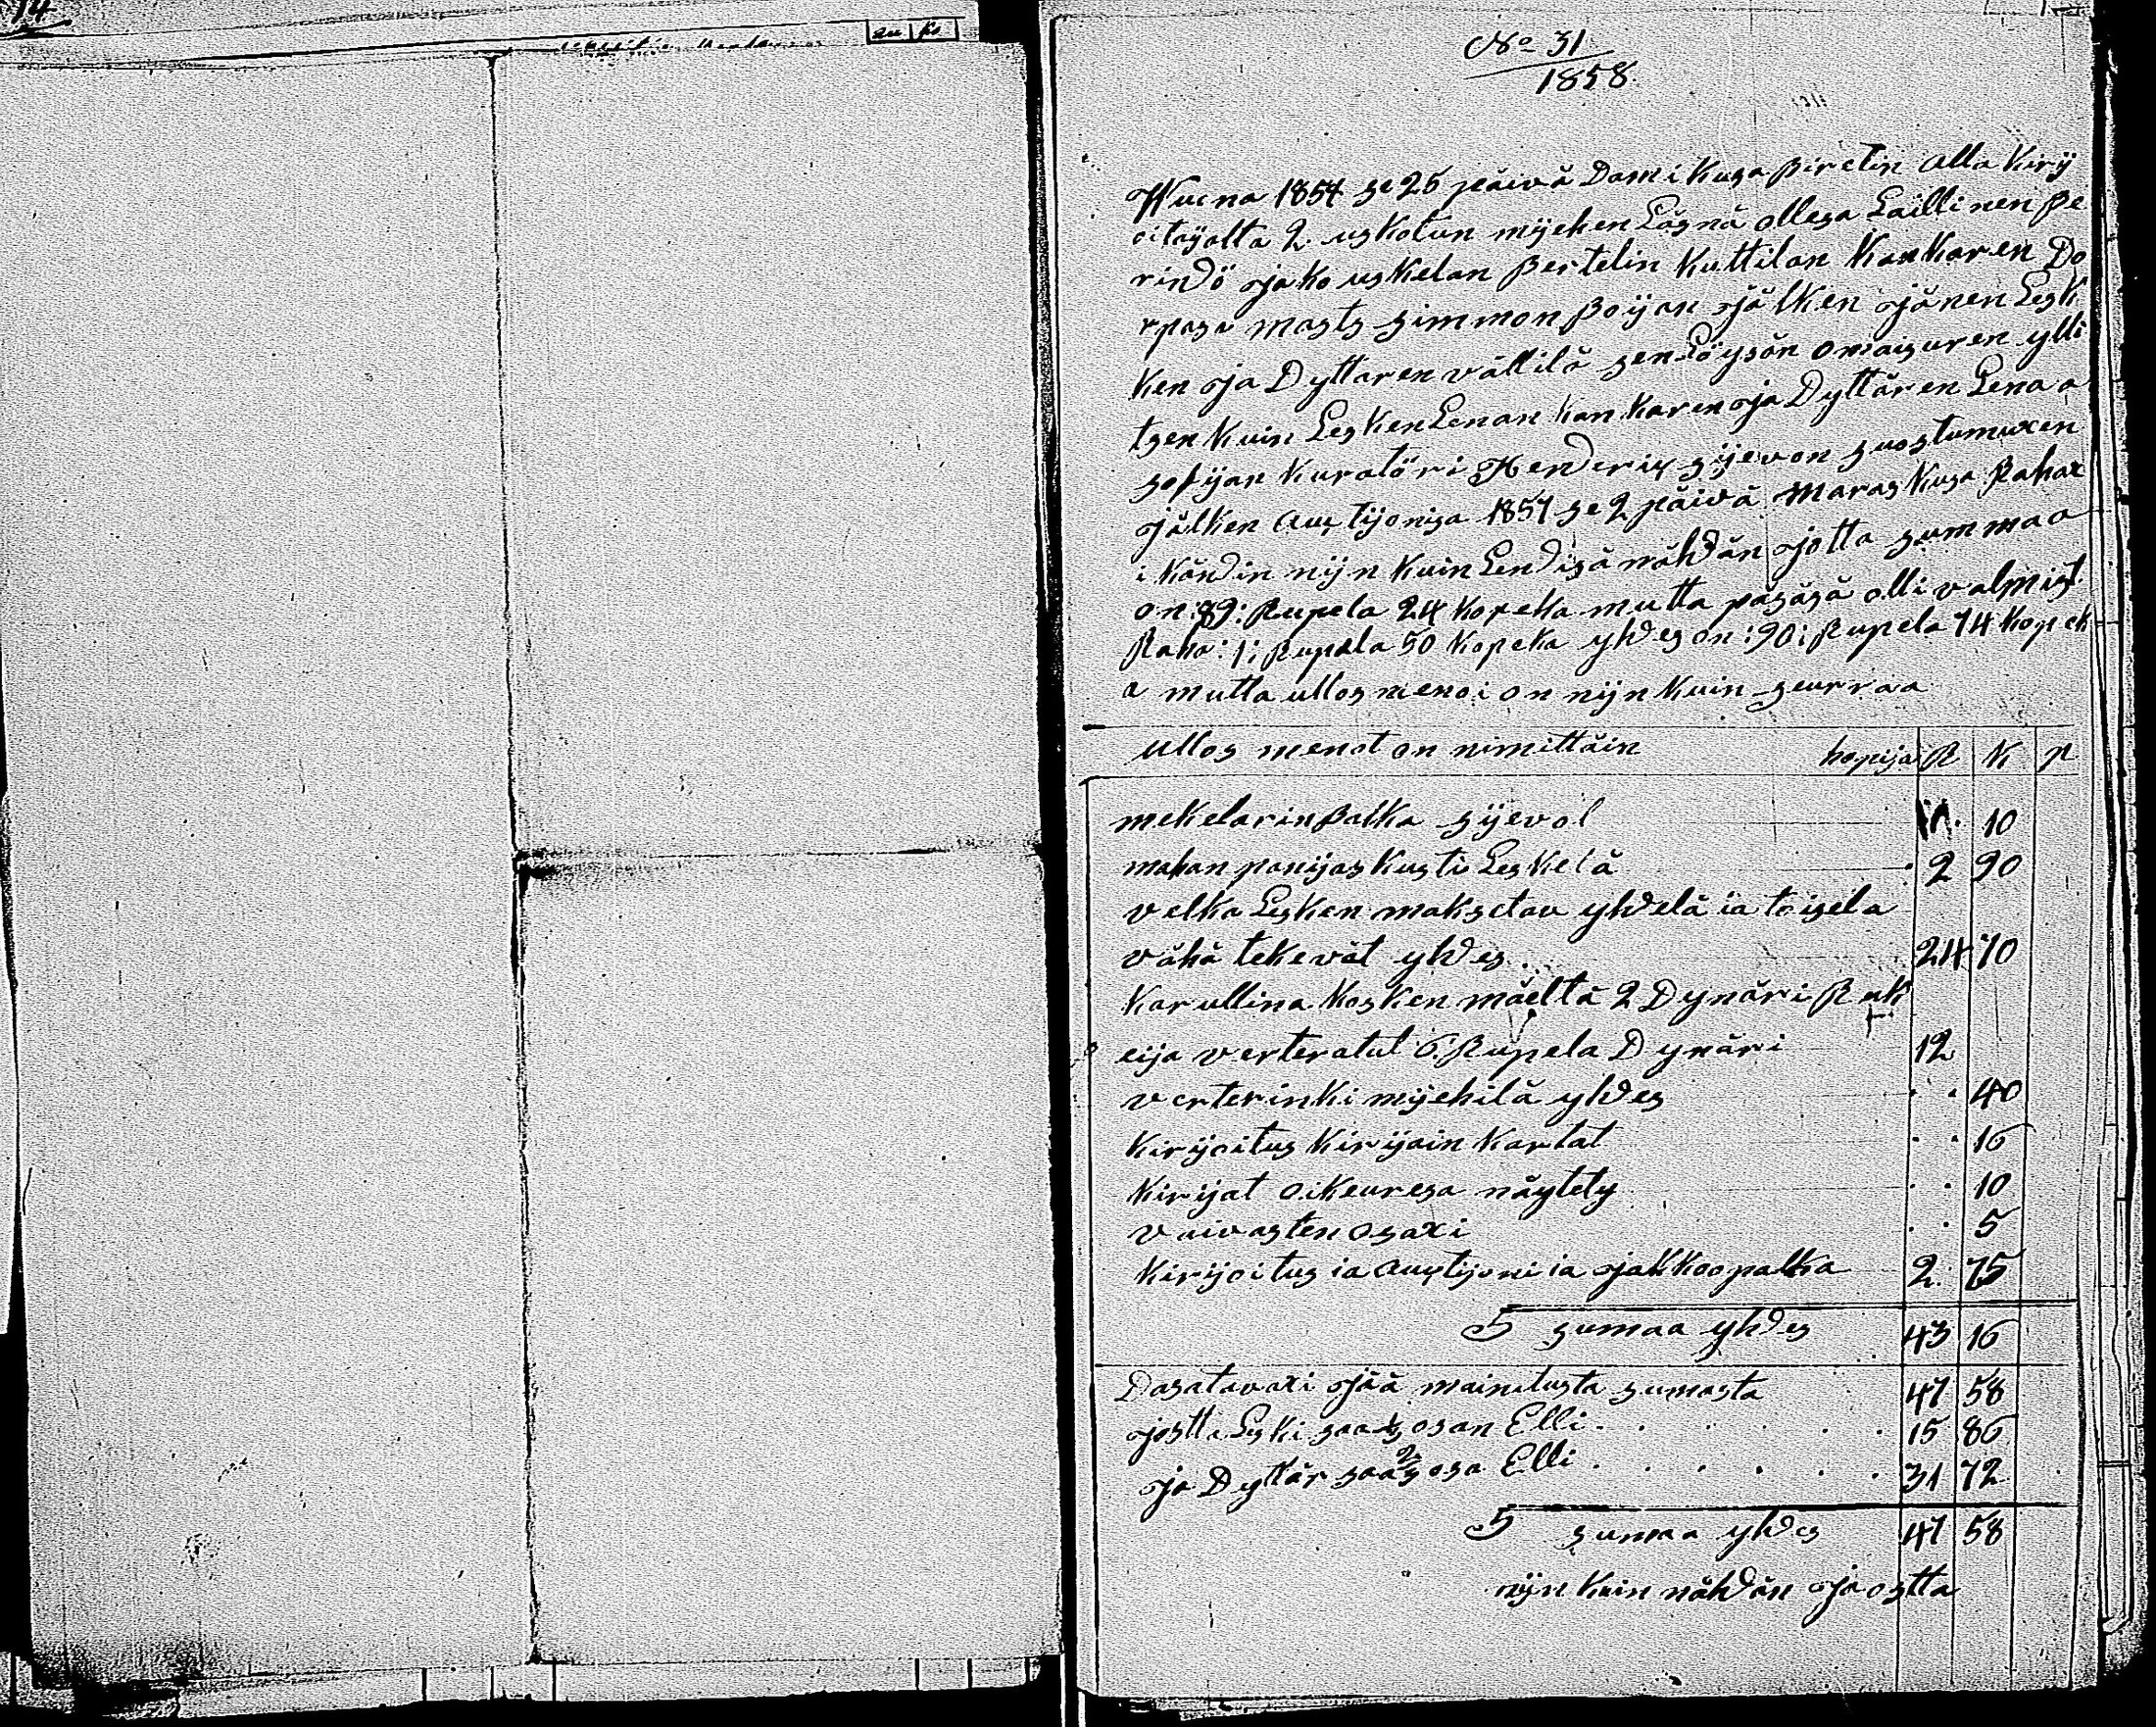 14
No 31
1858.
Wuona 1854 se 25 päivä Damikusa piretin alla Kirij
oitajalta 2 uskotun myehen Läsnä ollesa Laillinen pe
rindö ja ko uskelan pertelin Kuttilan Kankaren Do
rpasa masts simmon poijan jälken jänen Lesk
ken ja Dyttaren vällilä sen Löysän omaisuren ylli
tsen Kuin Lesken Lenan kankaren ja Dyttären Lena a
sofijan Kuratöri Henderix sijevon suostumuxen
jälken Auxtijonisa 1857 se 2 päivä Maraskusa Rahax
i kändin nijn Kuin Lendisä nähdän jotta summaa
on: 89: Rupela 24 kopeka mutta päsäsä olli valmist
Raha: 1: Rupela 50 kopeka yhdes on: 90: Rupela 74 kopek
a mutta ullos menoi on nijn Kuin seurraa
Ullos menot on nimittäin hopija R K p
mekelarin palka sijevol 1 10
mahan panijas Kusti Leskelä 2 90
velka Lesken maksetau yhdelä ia toisela
vähä tekevät yhdes 24 70
Karullina Kosken mäeltä 2 Dynäri Ruk
eija verteratut 6 Rupela Dynäri 12
verterinki myehilä yhdes 40
Kirijoitus Kirijain Kartat 16
Kirijat oikeuresa näytety 10
vaivasten osaxi 5
Kirijoitus ia Auxtijoni ia jakkoopalka 2 75
S sumaa yhdes 43 16
Dasatavaxi jää mainitusta sumasta 47 58
jostta Leski saa 1/3 osan Elli 15 86
ja Dyttär saa 2/3 osa Elli 31 72
S sumaa yhdes 47 58
nijn Kuin nähdän ja ostta